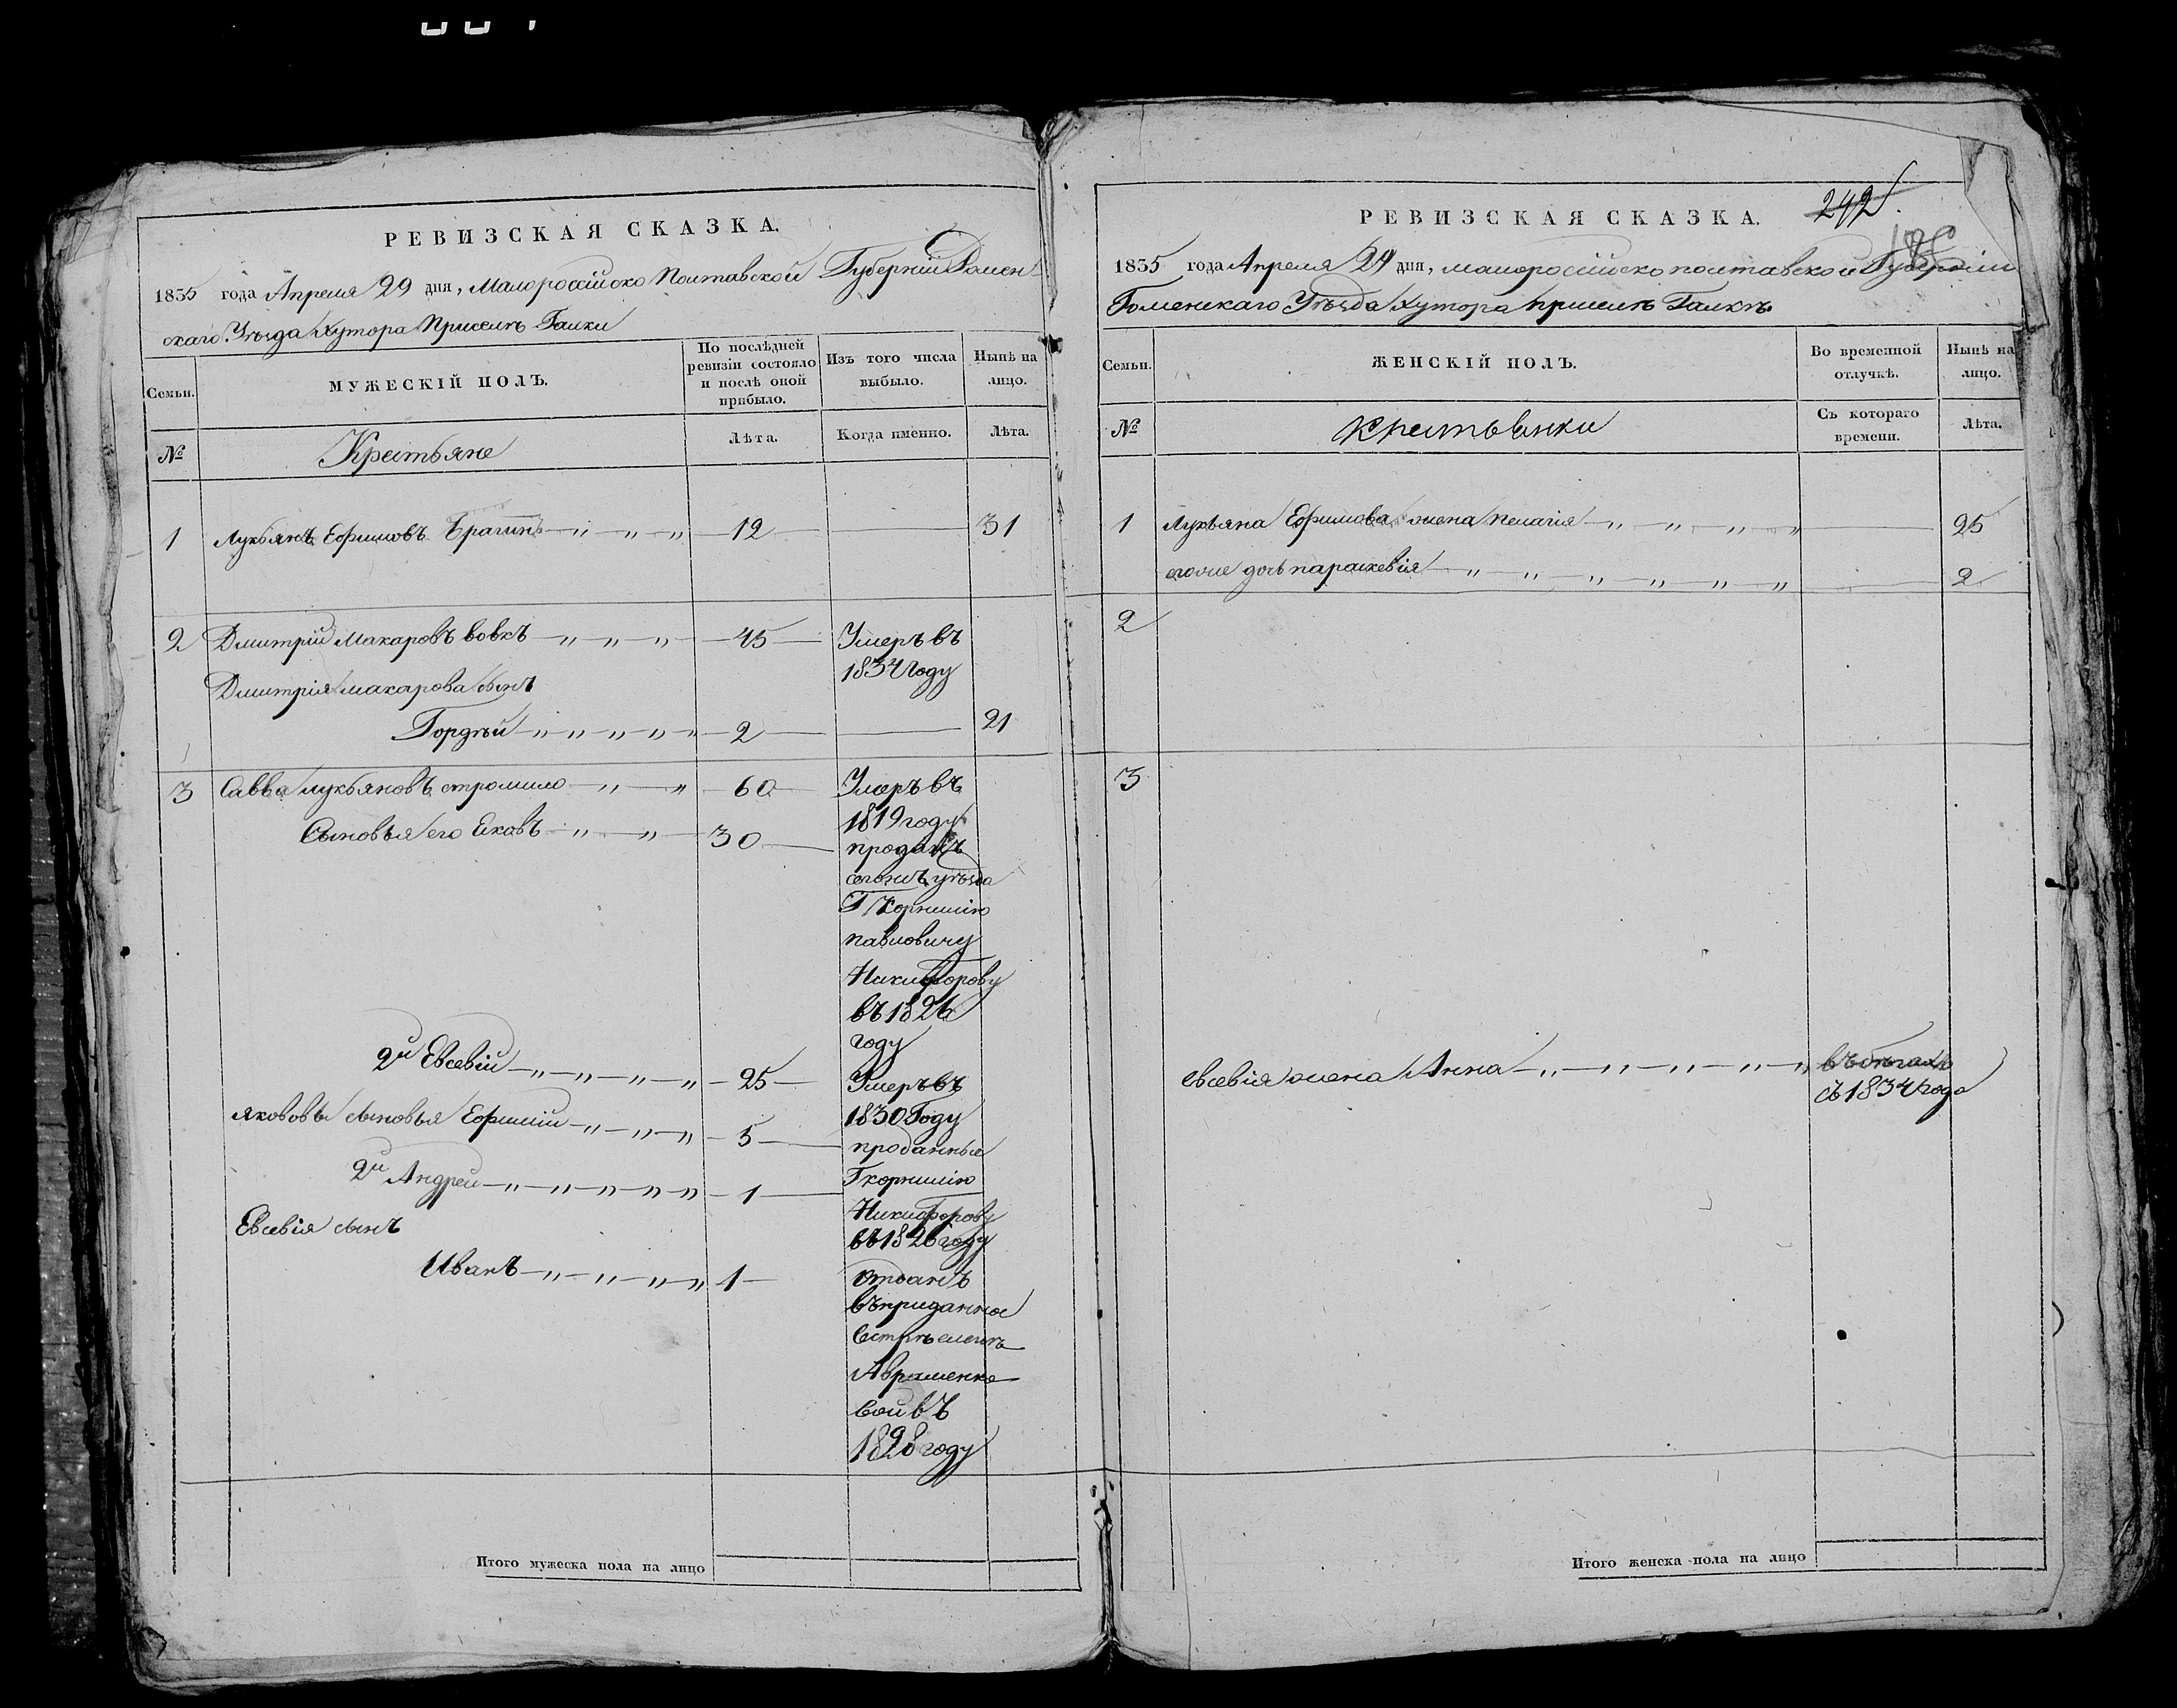 РЕВИЗСКАЯ СКАЗКА.
1835 года Апреля 29 дня, Малоросiйско Полтавской Губернiи Ромен
скаго Уѣзда Хутора При селѣ Галки
Семьи.
МУЖЕСКІЙ ПОЛЪ.
По послѣдней ревизіи состояло и послѣ оной прибыло.
Изъ того числа выбыло.
Нынѣ на лицо.
№
Крестьяне
Лѣта.
Когда именно.
Лѣта.
1 Лукьянъ Ефимовъ Брагинъ 12 31
2 Дмитрiй Макаровъ вовкъ 45 Умеръ въ
1834 году
Дмитрiя макарова сынъ
Гордѣй 2 21
3 Савва лукьяновъ стромило 60 Умеръ въ
1819 году
Сыновья его Яковъ 30 проданъ
уѣзда
Г Корнилiю
павловичу
Никифорову
въ 1826
году
2й Евсевiй 25 Умеръ въ
1830 Году
якововы сыновья Ефимiй 5 проданные
2й Андрей 1 Г корнилiю
Никифорову
въ 1826 году
Евсевiя сынъ
Иванъ 1 отданъ
въ приданное
Сестрѣ
Авраменко
вой въ
1828 году
Итого мужеска пола на лицо
РЕВИЗСКАЯ СКАЗКА.
292
1835 года Апреля 29 дня, малоросiйско полтавской Губернiи
Роменскаго Уѣзда Хутора при селѣ Галкѣ
Семьи.
ЖЕНСКІЙ ПОЛЪ.
Во временной отлучкѣ.
Нынѣ на лицо.
№
Крестьянки
Съ котораго времени.
Лѣта.
1 Лукьяна Ефимова жена пелагiя 25
его же дочь параскевiя 2
2
3
евсевiя жена Анна въ бѣгахъ
съ 1834 года
Итого женска пола на лицо